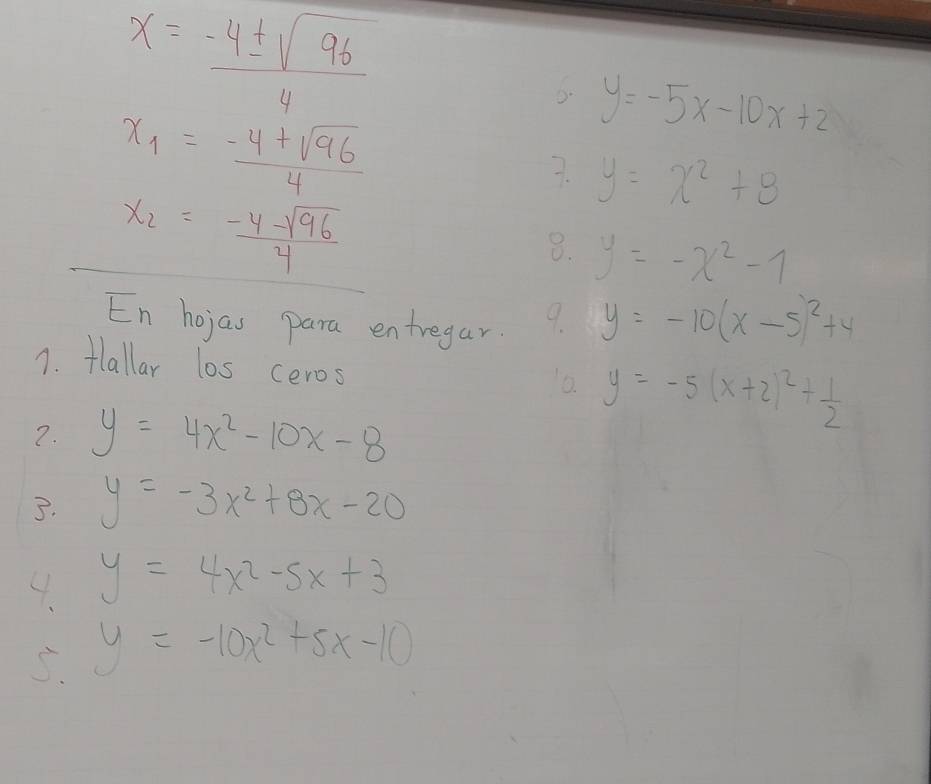 x = -4 ± √96 / 4
x₁ = -4 + √96 / 4
x₂ = -4 - √96 / 4
En hojas para entregar.
1. Hallar los ceros
2. y = 4x² - 10x - 8
3. y = -3x² + 8x - 20
4. y = 4x² - 5x + 3
5. y = -10x² + 5x - 10
6. y = -5x - 10x + 2
7. y = x² + 8
8. y = -x² - 1
9. y = -10(x - 5)² + 4
10. y = -5(x + 2)² + 1/2